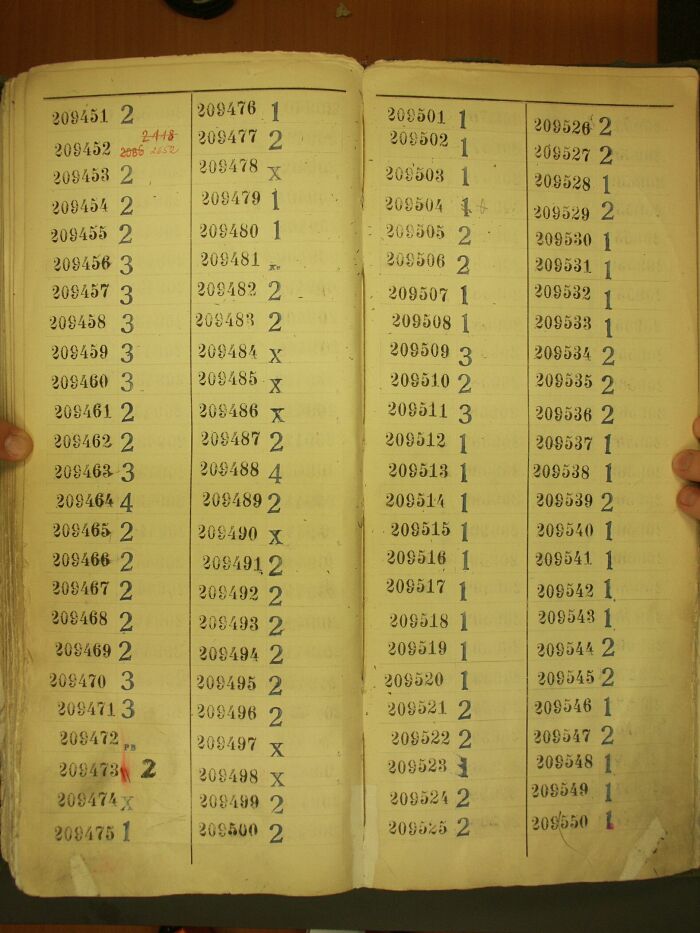 209451 2
209452 2-1-18
2086 2652
209453 2
209454 2
209455 2
209456 3
209457 3
209458 3
209459 3
209460 3
209461 2
209462 2
209463 3
209464 4
209465 2
209466 2
209467 2
209468 2
209469 2
209470 3
209471 3
209472 PB
209473 2
209474 X
209475 1
209476 1
209477 2
209478 X
209479 1
209480 1
209481
209482 2
209483 2
209484 X
209485 X
209486 X
209487 2
209488 4
209489 2
209490 X
209491 2
209492 2
209493 2
209494 2
209495 2
209496 2
209497 X
209498 X
209499 2
209500 2
209501 1
209502 1
209503 1
209504 1
209505 2
209506 2
209507 1
209508 1
209509 3
209510 2
209511 3
209512 1
209513 1
209514 1
209515 1
209516 1
209517 1
209518 1
209519 1
209520 1
209521 2
209522 2
209523 1
209524 2
209525 2
209526 2
209527 2
209528 1
209529 2
209530 1
209531 1
209532 1
209533 1
209534 2
209535 2
209536 2
209537 1
209538 1
209539 2
209540 1
209541 1
209542 1
209543 1
209544 2
209545 2
209546 1
209547 2
209548 1
209549 1
209550 1